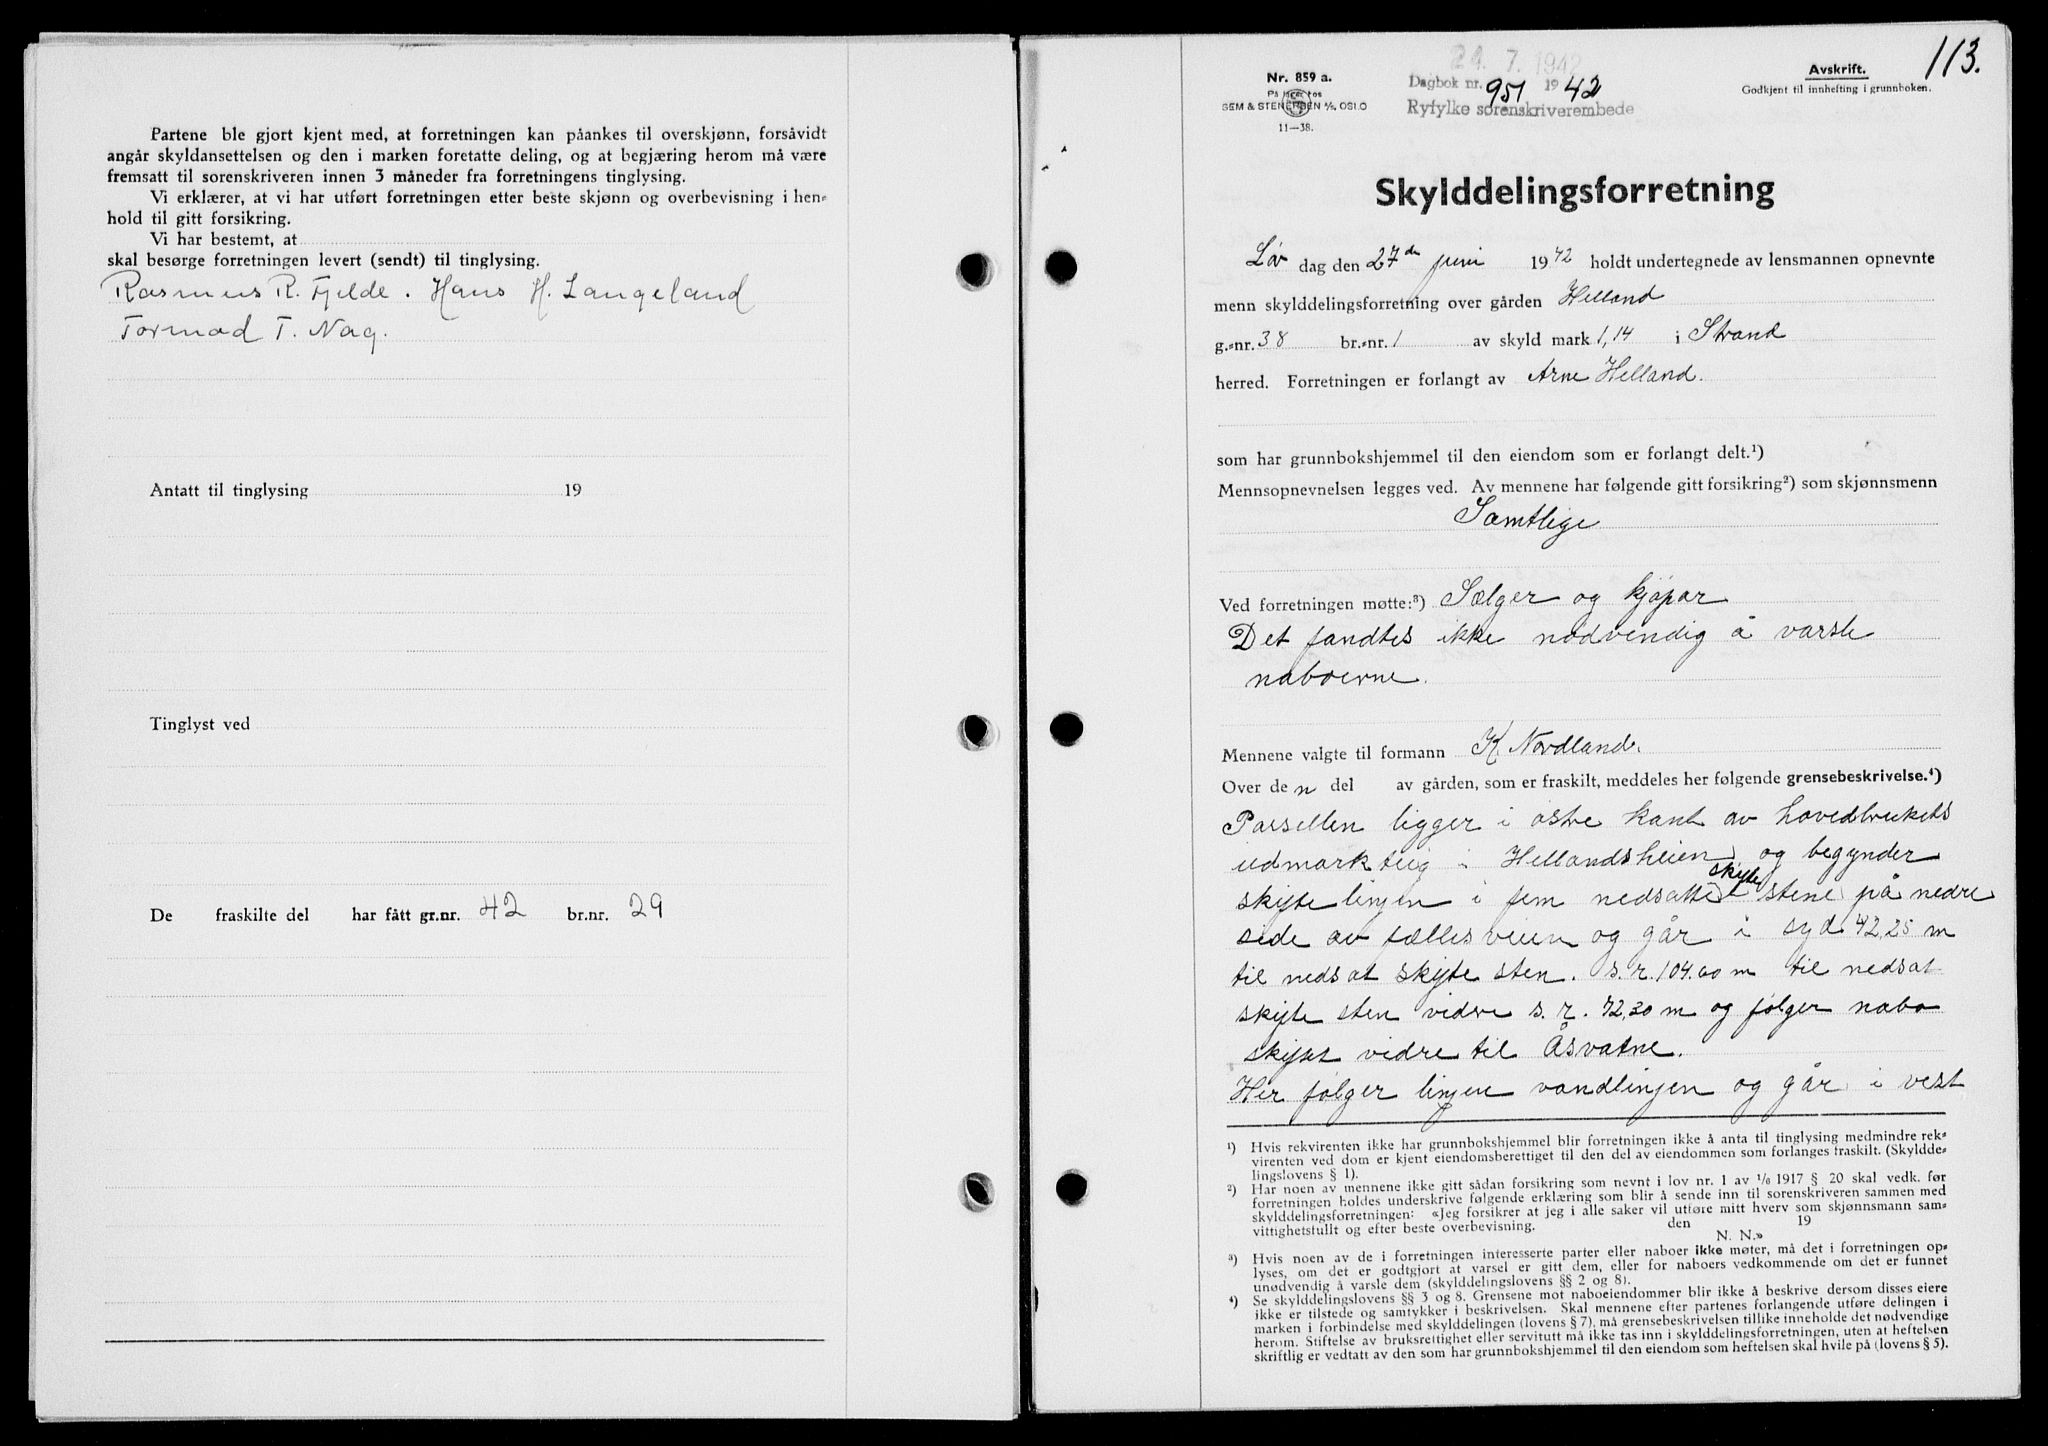 Partene ble gjort kjent med, at forretningen kan påankes til overskjønn, forsåvidt
angår skyldansettelsen og den i marken foretatte deling, og at begjæring herom må være
fremsatt til sorenskriveren innen 3 måneder fra forretningens tinglysing.
Vi erklærer, at vi har utført forretningen etter beste skjønn og overbevisning i hen-
hold til gitt forsikring.
Vi har bestemt, at
skal besørge forretningen levert (sendt) til tinglysing.
Rasmus R. Fjelde. Hans H. Langeland
Tormod T. Nag.
Antatt til tinglysing 19
Tinglyst ved
De fraskilte del har fått gr.nr. 42 br.nr. 29
113.
Nr. 859 a.
På lager hos
SEM & STENERSEN A/S, OSLO
11—38.
29. 7. 1942
Dagbok nr. 951 1942
Ryfylke sorenskriverembede
Avskrift.
Godkjent til innhefting i grunnboken.
Skylddelingsforretning
Lør dag den 27de juni 1942 holdt undertegnede av lensmannen opnevnte
menn skylddelingsforretning over gården Helland
g.-nr. 38 br.-nr. 1 av skyld mark 1,14 i Strand
herred. Forretningen er forlangt av Arne Helland.
som har grunnbokshjemmel til den eiendom som er forlangt delt.¹)
Mennsopnevnelsen legges ved. Av mennene har følgende gitt forsikring²) som skjønnsmenn
Samtlige
Ved forretningen møtte:³) Sælger og kjøpar
Det fandtes ikke nødvendig å varsle
naboerne.
Mennene valgte til formann K. Nordland.
Over den del av gården, som er fraskilt, meddeles her følgende grensebeskrivelse.⁴)
Parsellen ligger i østre kant av hovedbrukets
udmarkteig i Hellandsheien og begynder
skifte linjen i fem nedsatte skifte stene på nedre
side av fælles veien og går i syd 42,25 m
til nedsat skifte sten. s.r. 104.00 m til nedsat
skifte sten vidre s. r. 72,30 m og følger nabo
skiftet vidre til Åsvatne.
Her følger linjen vandlinjen og går i vest
¹) Hvis rekvirenten ikke har grunnbokshjemmel blir forretningen ikke å anta til tinglysing medmindre rek-
virenten ved dom er kjent eiendomsberettiget til den del av eiendommen som forlanges fraskilt. (Skyldde-
lingslovens § 1).
²) Har noen av mennene ikke gitt sådan forsikring som nevnt i lov nr. 1 av 1/6 1917 § 20 skal vedk. før
forretningen holdes underskrive følgende erklæring som blir å sende inn til sorenskriveren sammen med
skylddelingsforretningen: «Jeg forsikrer at jeg i alle saker vil utføre mitt hverv som skjønnsmann sam-
vittighetsfullt og efter beste overbevisning. den 19
N. N.»
³) Hvis noen av de i forretningen interesserte parter eller naboer ikke møter, må det i forretningen op-
lyses, om det er godtgjort at varsel er gitt dem, eller for naboers vedkommende om det er funnet
unødvendig å varsle dem (skylddelingslovens §§ 2 og 8).
⁴) Se skylddelingslovens §§ 3 og 8. Grensene mot naboeiendommer blir ikke å beskrive dersom disses eiere
ikke er tilstede og samtykker i beskrivelsen. Skal mennene efter partenes forlangende utføre delingen i
marken i forbindelse med skylddelingen (lovens § 7), må grensebeskrivelsen tillike inneholde det nødvendige
herom. Stiftelse av bruksrettighet eller servitutt må ikke tas inn i skylddelingsforretningen, uten at heftelsen
skriftlig er vedtatt av den som har grunnbokshjemmel til den eiendom som heftelsen skal hvile på (lovens § 5).